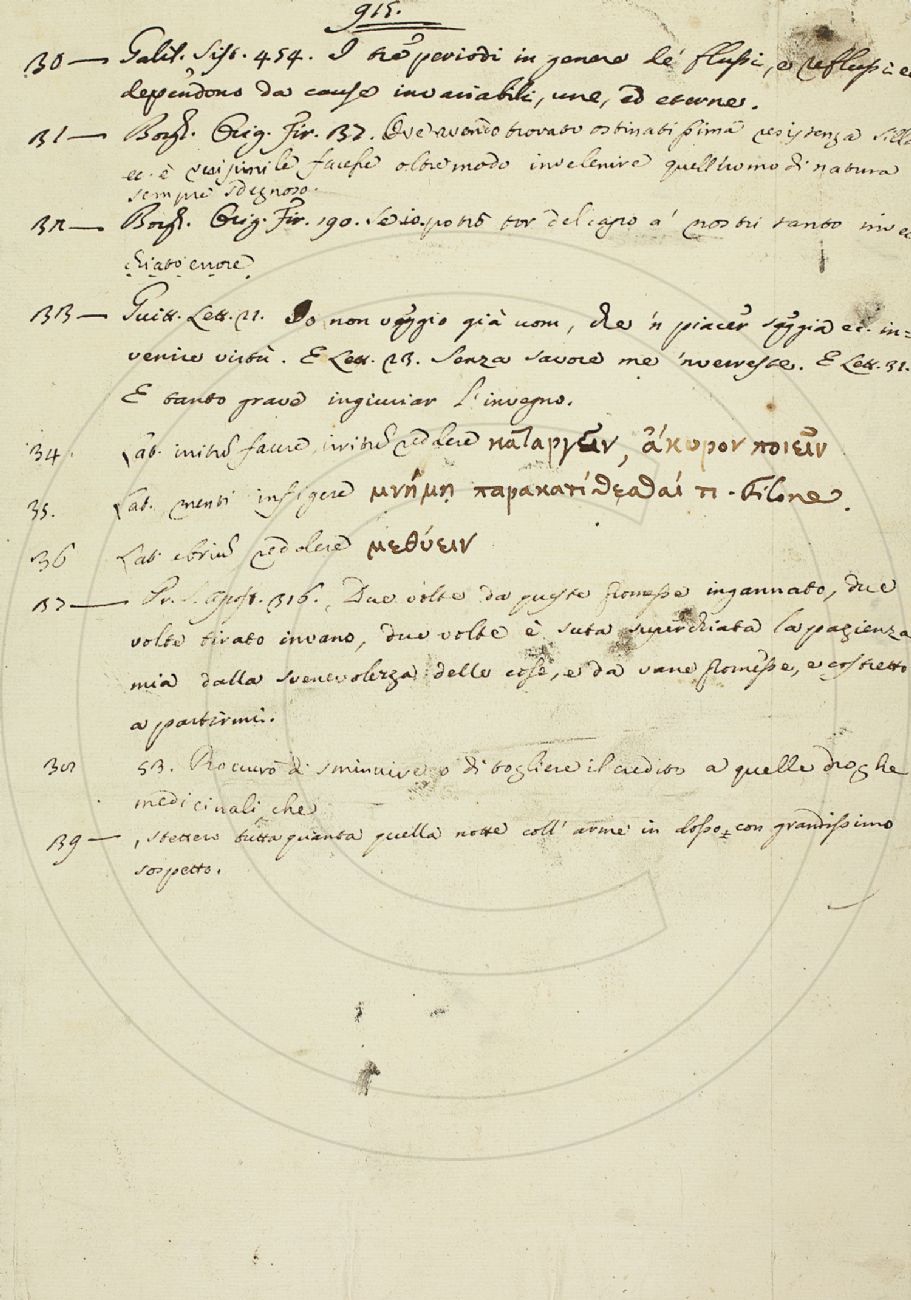 915.
30 — Galil. Sist. 454. I tre periodi in genere de' flussi, e reflussi ec
dependono da cause invariabili, une, ed eterne.
31 — Borgh. Orig. Fir. 37. Ove avendo trovato ostinatissima resistenza Silla
ec. è verisimile facesse oltremodo invelenire quell'uomo di natura
sempre sdegnoso.
32 — Borgh. Orig. Fir. 190. Se io potrò tor del capo a' nostri tanto invec
chiato errore
33 — Guitt. Lett. 21. Do non veggio già uom, che 'n piacer seggia ec. in=
venire virtù. E Lett. 23. Senza savore me 'nvenreste. E Lett. 31.
E tanto grave ingiuriar l'invegno.
34. Lat. irritum facere, irritum reddere καταργεῖν, ἄκυρον ποιεῖν
35. Lat. menti infigere μνήμῃ παρακατίθεσθαί τι - Filone.
36 Lat. ebrium reddere μεθύειν
37 — Pr. S. Agost. 316. Due volte da queste promesse ingannato, due
volte tirato invano, due volte è suta superchiata la pazienza
mia dalla svenevolezza delle cose, e da vane promesse, e costretto
a partirmi.
38 53. Procurò di sminuire o di togliere il credito a quelle droghe
medicinali che
39 — , stettero tutta quanta quella notte coll'arme in dosso, con grandissimo
sospetto.